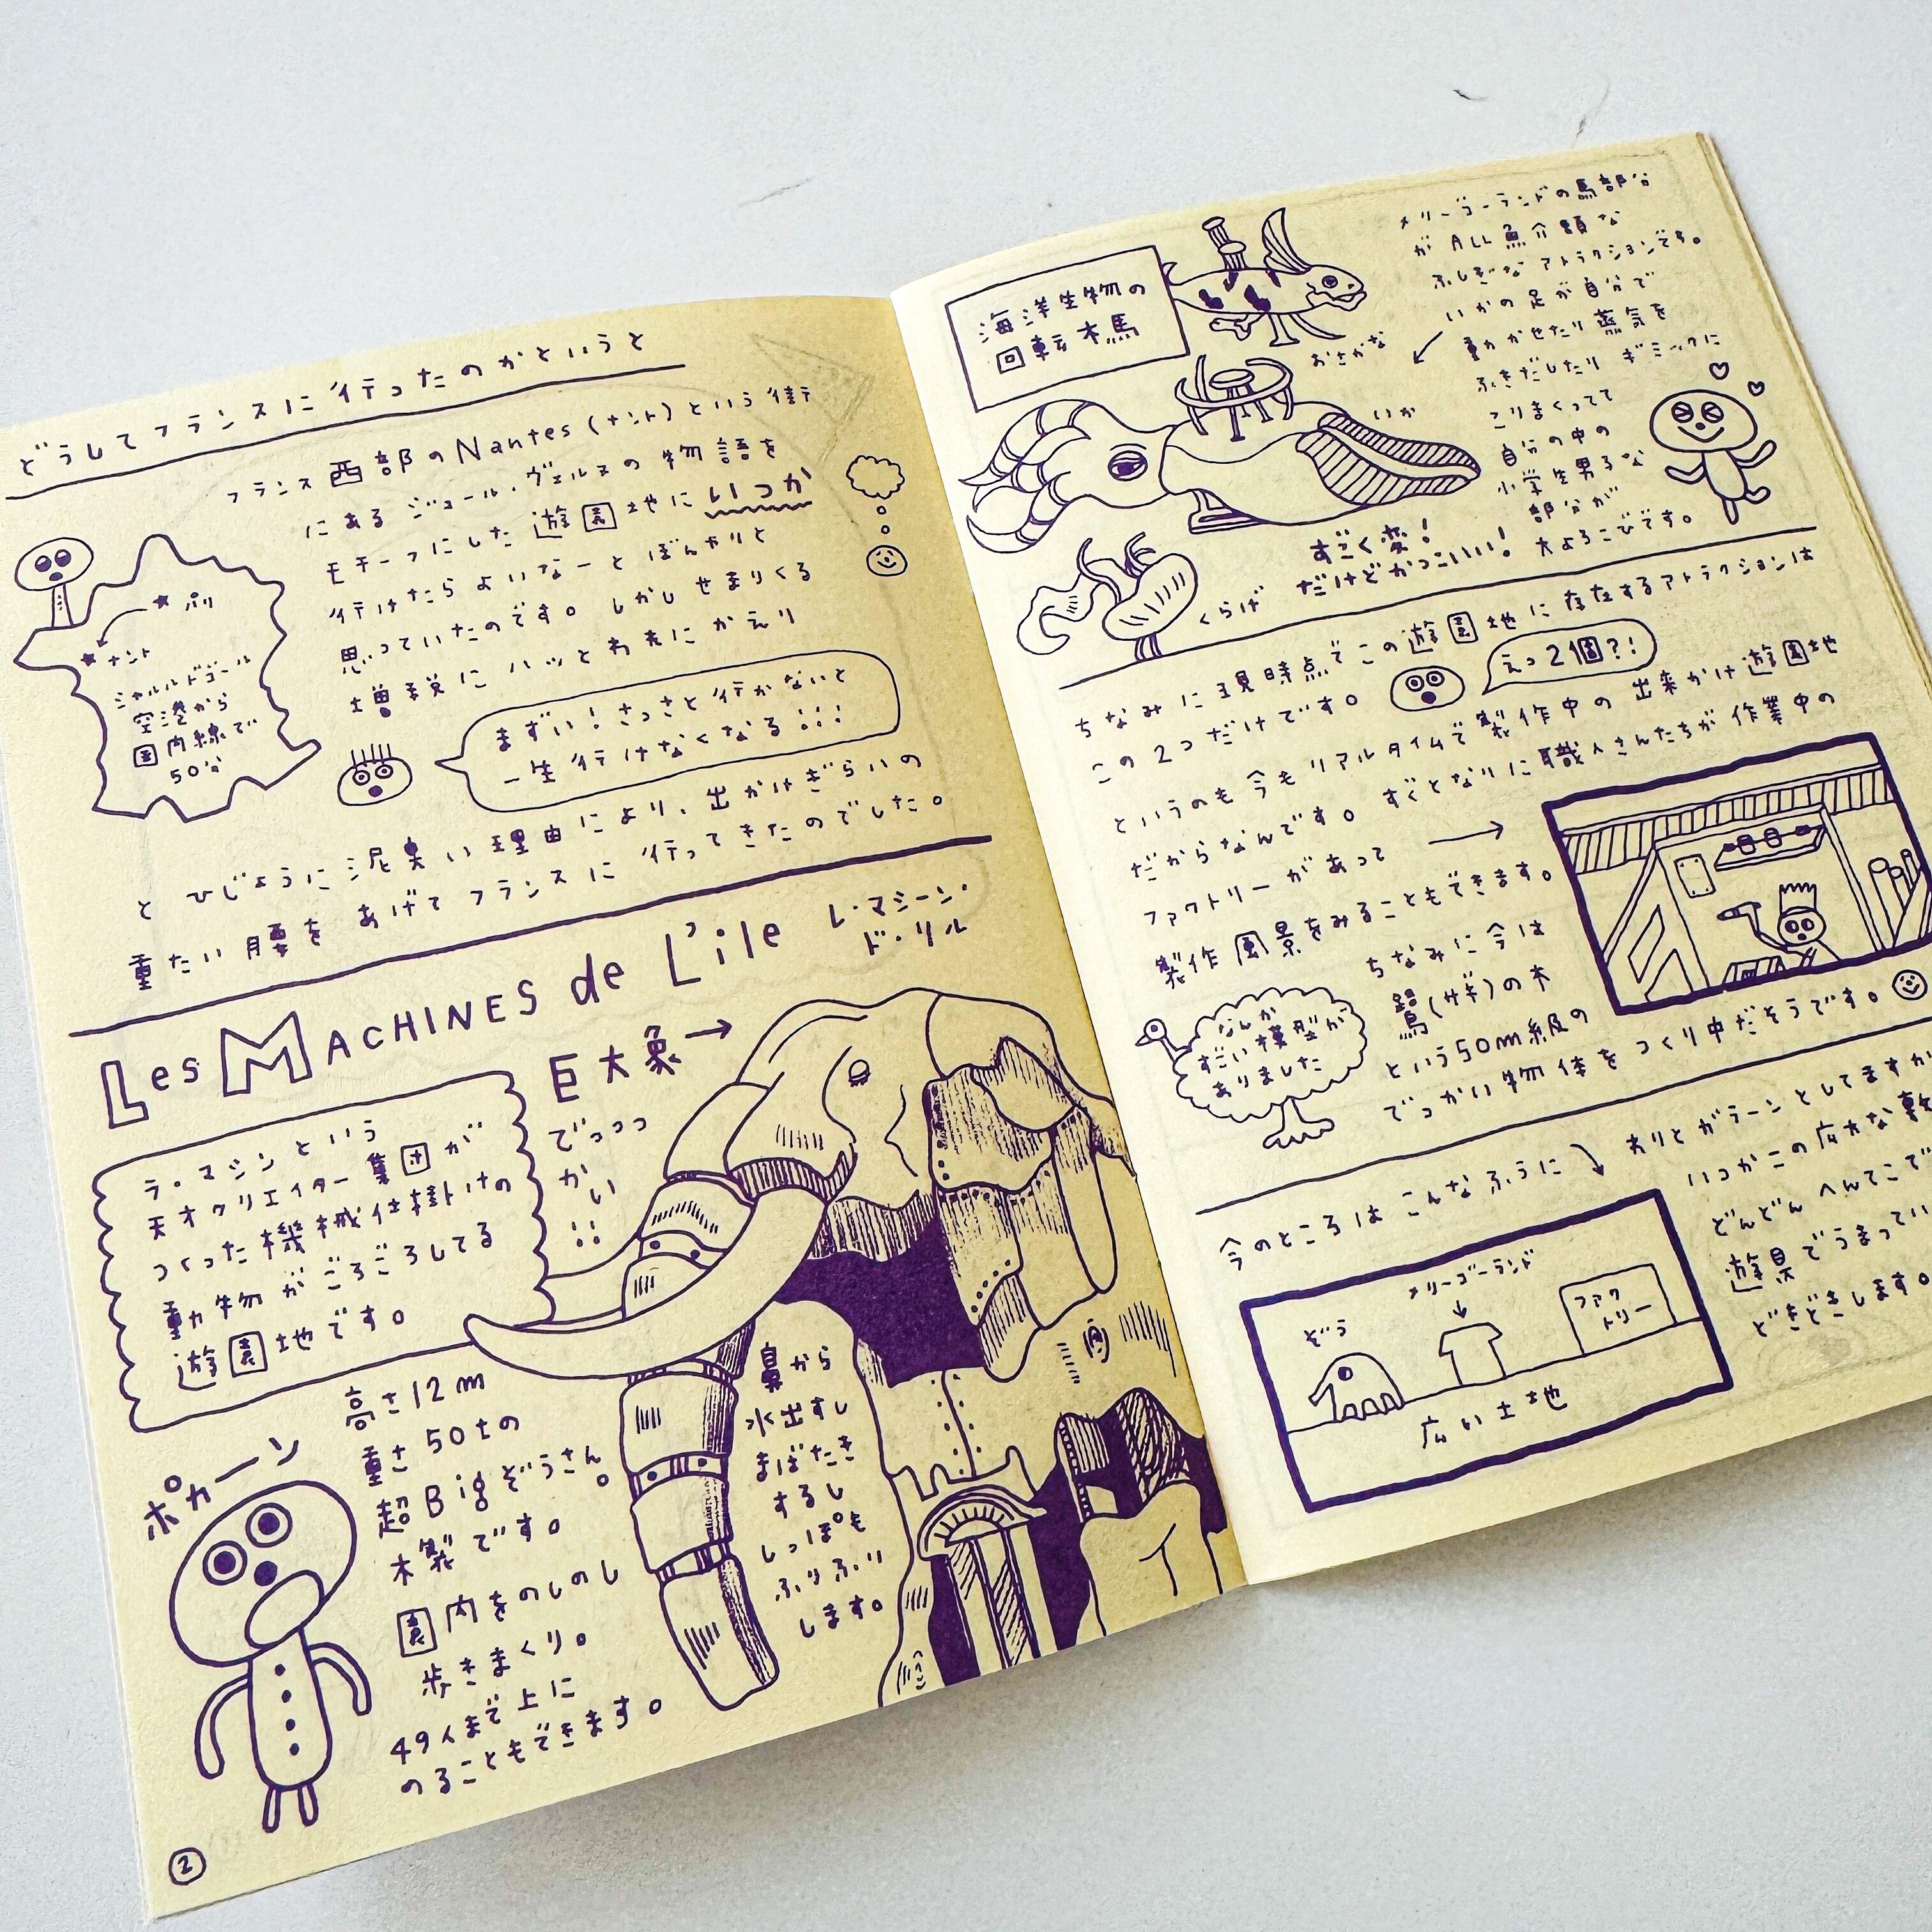 どうしてフランスに行ったのかというと
フランス西部のNantes(ナント)という街
にあるジュール・ヴェルヌの物語を
モチーフにした遊園地にいつか
行けたらよいなーとぼんやりと
思っていたのです。しかしせまりくる
増税にハッとわれにかえり
パリ
ナント
シャルルドゴール
空港から
国内線で
50分
まずい!さっさと行かないと
一生行けなくなる!!!
と ひじょうに泥臭い理由により、出かけぎらいの
重たい腰をあげてフランスに行ってきたのでした。
Les MACHINES de L'ile
レ・マシーン・
ド・リル
ラ・マシンという
天才クリエイター集団が
つくった機械仕掛けの
動物がごろごろしてる
遊園地です。
巨大象→
でっっっ
かい
!!
ポカーン
高さ12m
重さ50tの
超Bigぞうさん。
木製です。
園内をのしのし
歩きまくり。
49人まで上に
のることもできます。
鼻から
水出すし
まばたき
するし
しっぽも
ふりふり
します。
2
海洋生物の
回転木馬
おさかな
いか
くらげ
すごく変!
だけどかっこいい!
メリーゴーランドの馬部分
がALL魚介類な
ふしぎなアトラクションです。
いかの足が自分で
動かせたり蒸気を
ふきだしたりギミックに
こりまくってて
自分の中の
小学生男子な
部分が
大よろこびです。
ちなみに現時点でこの遊園地に存在するアトラクションは
この2つだけです。
えっ2個?!
というのも今もリアルタイムで製作中の出来かけ遊園地
だからなんです。すぐとなりに職人さんたちが作業中の
ファクトリーがあって
製作風景をみることもできます。
なんか
すごい模型が
ありました
ちなみに今は
鷺(サギ)の木
という50m級の
でっかい物体をつくり中だそうです。
今のところはこんなふうに
わりとがラーンとしてますが
いつかこの広大な敷
どんどんへんてこで
遊具でうまってい
どきどきします。
ぞう
メリーゴーランド
ファク
トリー
広い土地